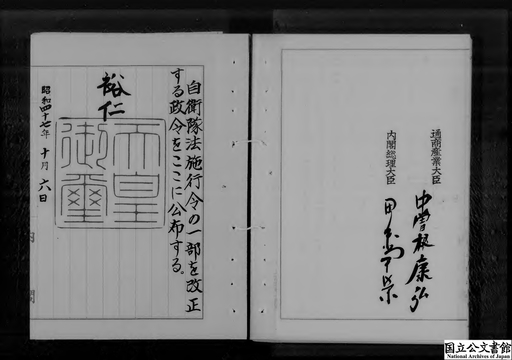 自衛隊法施行令の一部を改正
する政令をここに公布する。
裕仁
天皇
御璽
昭和四十七年十月六日
内閣
通商産業大臣
中曽根康弘
内閣総理大臣
田中角榮
国立公文書館
National Archives of Japan